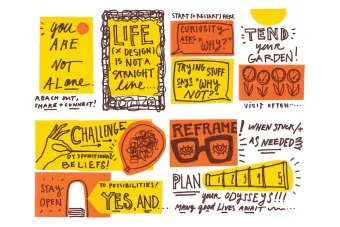 you
ARE
NOT
ALONE.
REACH OUT,
SHARE + CONNECT!
LIFE
(× DESIGN)
IS NOT A
STRAIGHT
line...
START (+ RESTART) HERE.
CURIOSITY
ASKS
"WHY?"
TRYING STUFF
says "WHY
NOT?"
TEND
your
GARDEN!
VISIT OFTEN...
CHALLENGE
DYSFUNCTIONAL
BELIEFS!
REFRAME!
WHEN STUCK/+
AS NEEDED
STAY
OPEN
TO POSSIBILITIES!
YES, AND...
PLAN
1 2 3 4 5
your ODYSSEYS!!!
MANY good LIVES AWAIT